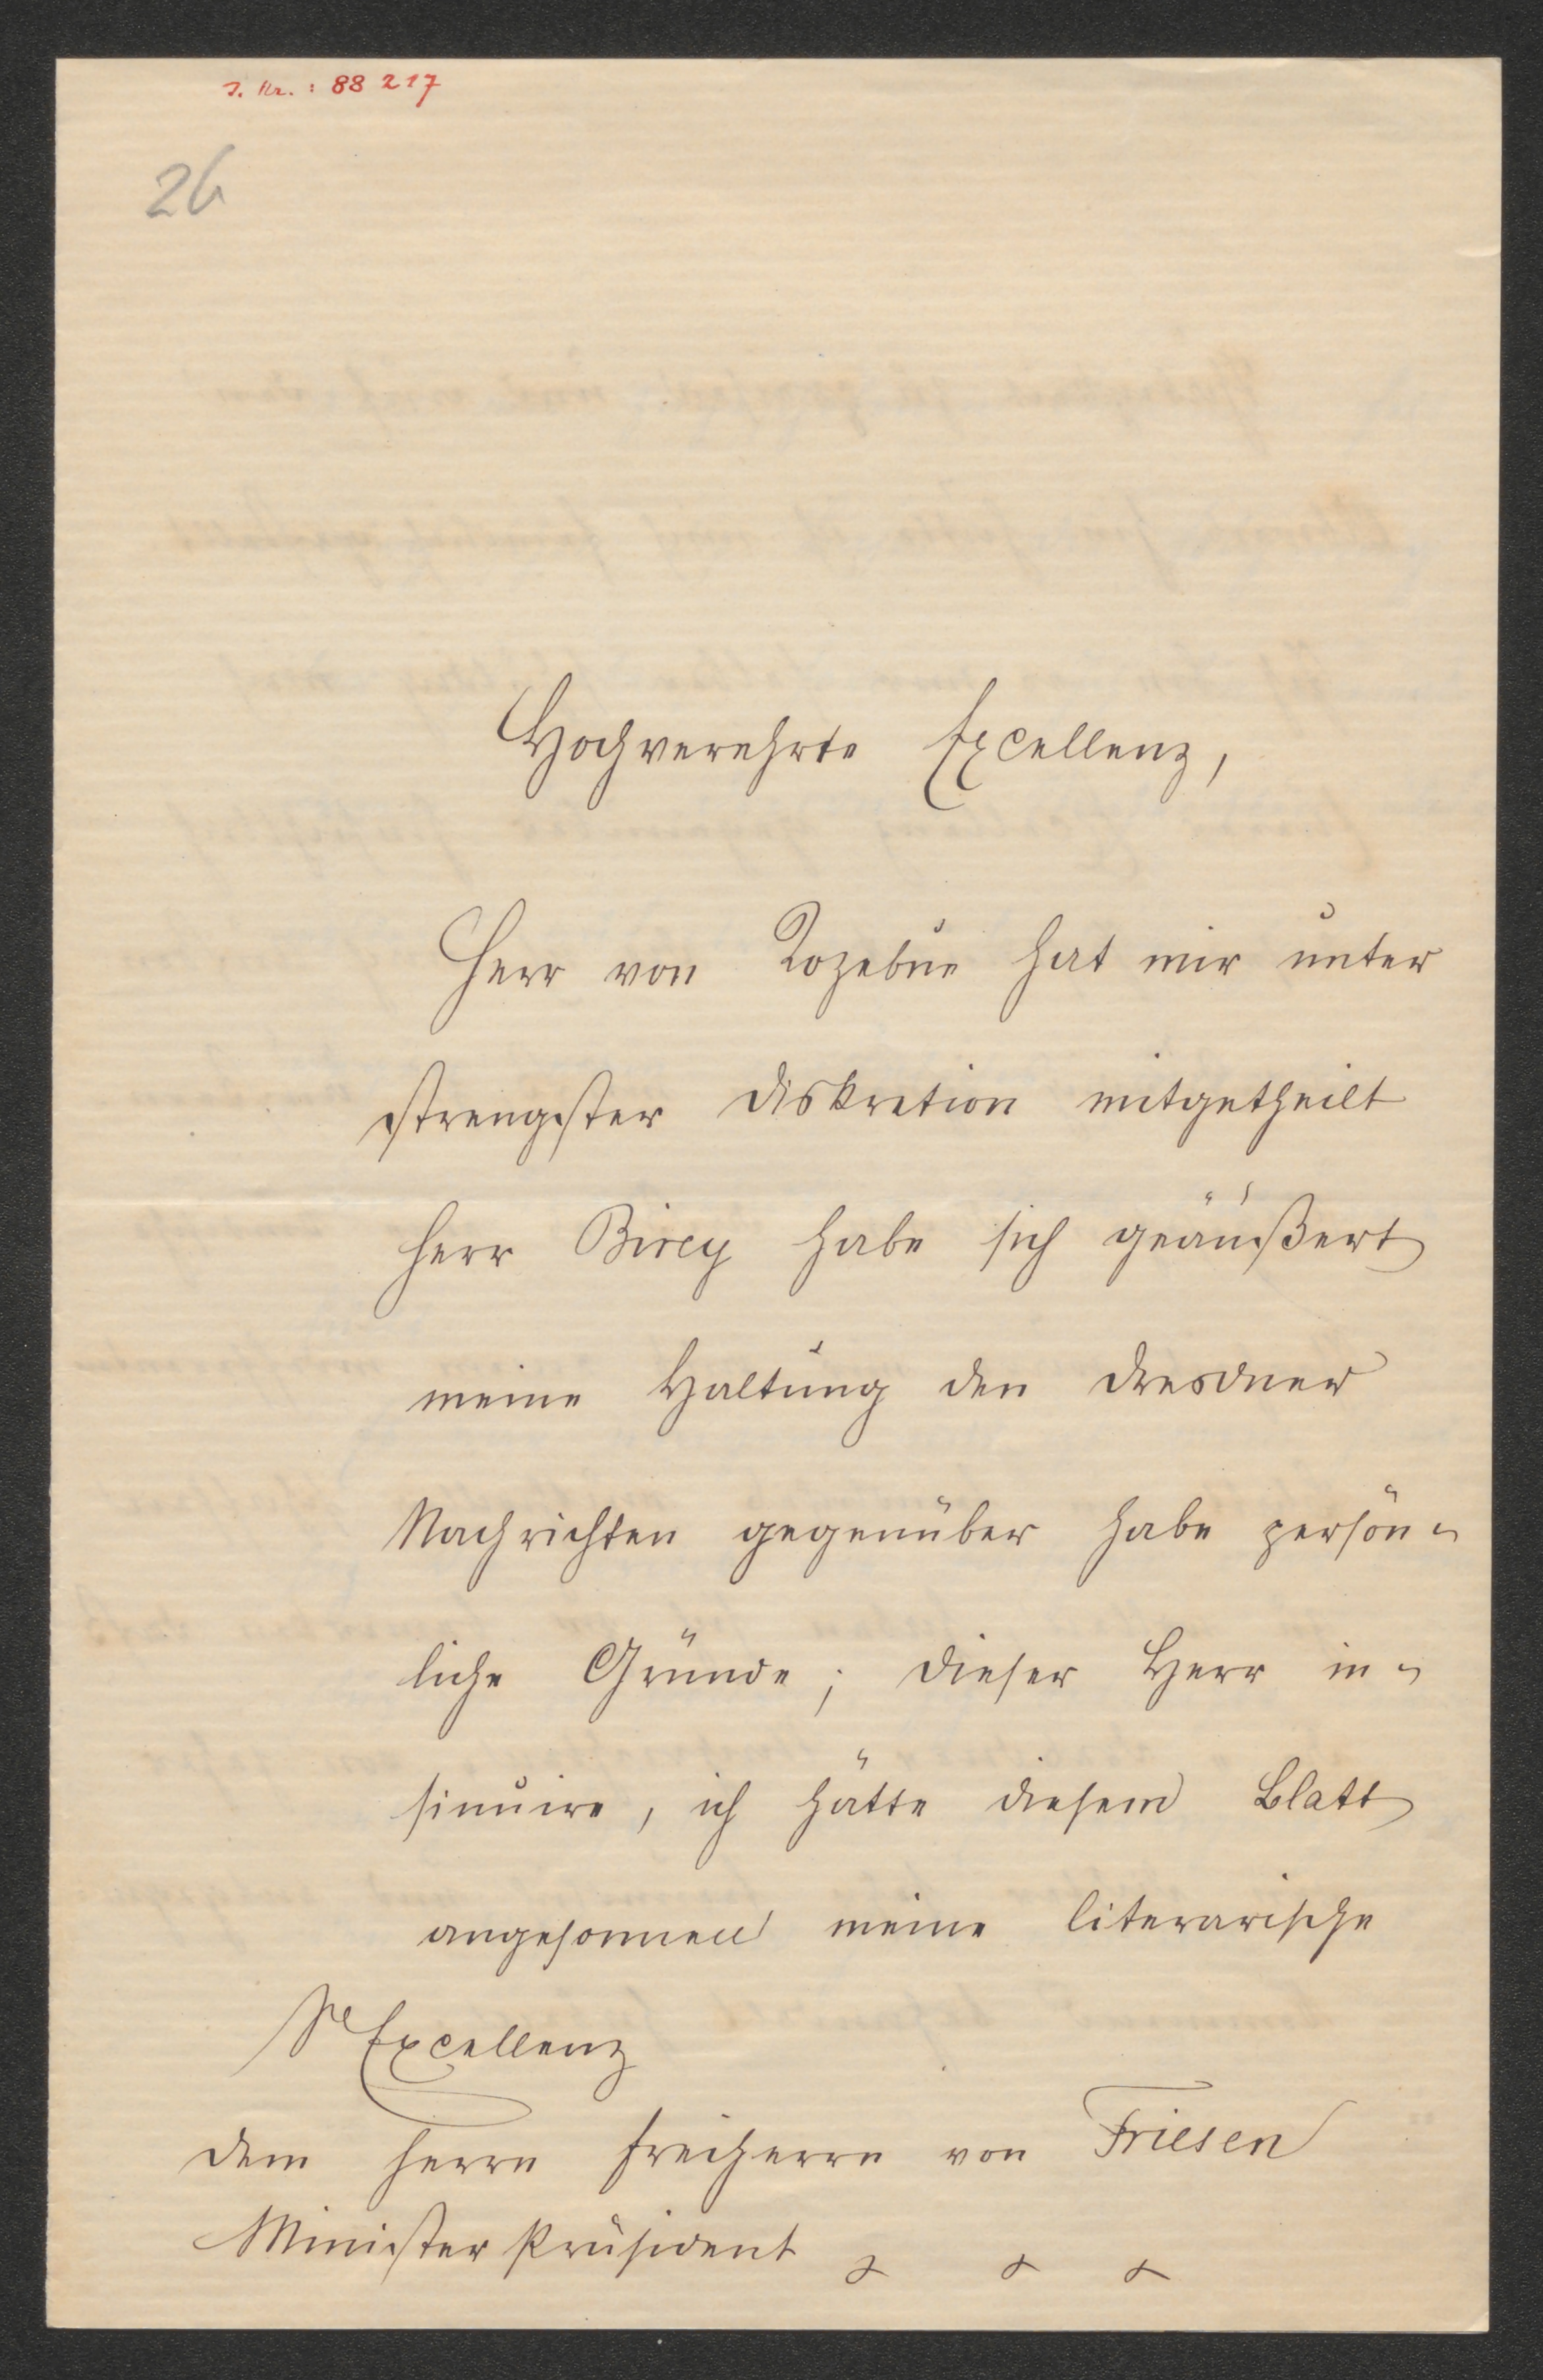 J. Nr.: 88 217
26
Hochverehrte Excellenz,
Herr von Kozebue hat mir unter
strengster Diskretion mitgetheilt
Herr Birey habe sich geäußert
meine Haltung den Dresdner
Nachrichten gegenüber habe persön-
liche Gründe; dieser Herr in-
sinuire, ich hätte diesem Blatt
angesonnen meine literarische
Sr Excellenz
dem Herrn Freiherrn von Friesen
Minister Präsident